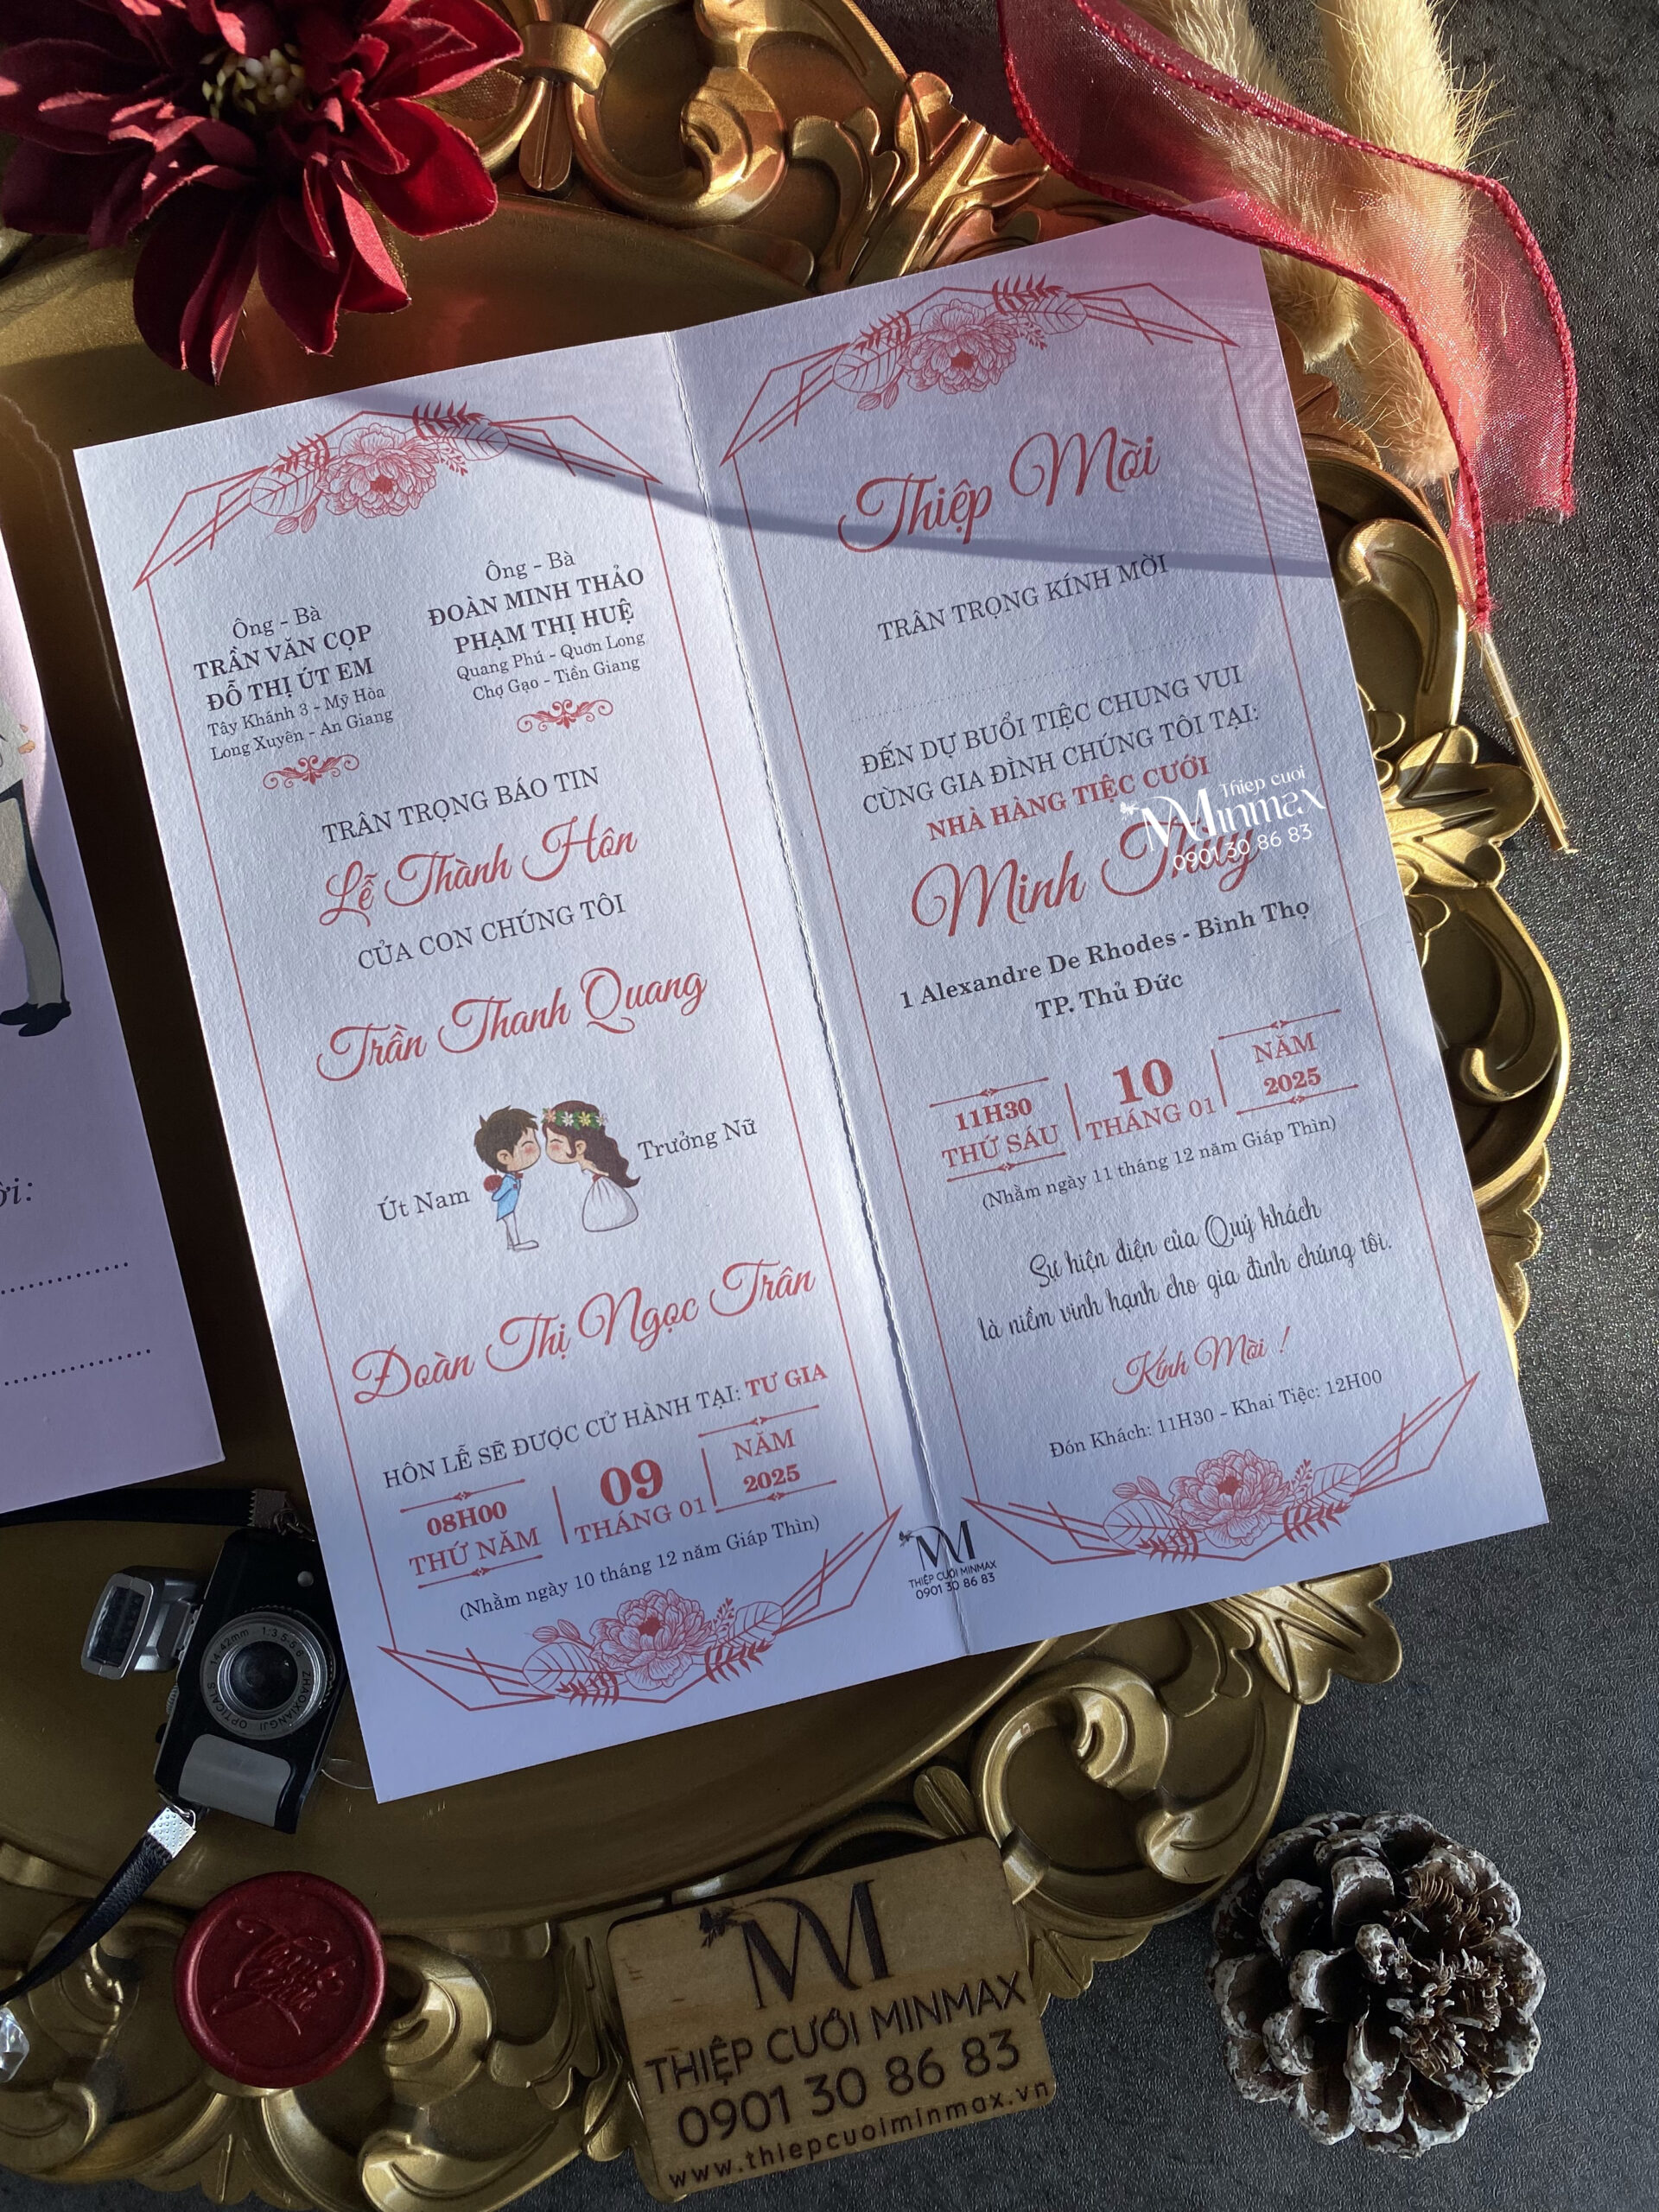 Ông - Bà
TRẦN VĂN CỌP
ĐỖ THỊ ÚT EM
Tây Khánh 3 - Mỹ Hòa
Long Xuyên - An Giang
Ông - Bà
ĐOÀN MINH THẢO
PHẠM THỊ HUỆ
Quang Phú - Quơn Long
Chợ Gạo - Tiền Giang
TRÂN TRỌNG BÁO TIN
Lễ Thành Hôn
CỦA CON CHÚNG TÔI
Trần Thanh Quang
Út Nam
Trưởng Nữ
Đoàn Thị Ngọc Trân
HÔN LỄ SẼ ĐƯỢC CỬ HÀNH TẠI: TƯ GIA
08H00
THỨ NĂM
09
THÁNG 01
NĂM
2025
(Nhằm ngày 10 tháng 12 năm Giáp Thìn)
Thiệp Mời
TRÂN TRỌNG KÍNH MỜI
ĐẾN DỰ BUỔI TIỆC CHUNG VUI
CÙNG GIA ĐÌNH CHÚNG TÔI TẠI:
NHÀ HÀNG TIỆC CƯỚI
Minh
Thiep cuoi
Minmax
0901 30 86 83
1 Alexandre De Rhodes - Bình Thọ
TP. Thủ Đức
11H30
THỨ SÁU
10
THÁNG 01
NĂM
2025
(Nhằm ngày 11 tháng 12 năm Giáp Thìn)
Sự hiện diện của Quý khách
là niềm vinh hạnh cho gia đình chúng tôi.
Kính Mời !
Đón Khách: 11H30 - Khai Tiệc: 12H00
M
THIỆP CƯỚI MINMAX
0901 30 86 83
14-42mm 1:3.5-5.6 ZHAOXIANGJI OPTICALS
M
THIỆP CƯỚI MINMAX
0901 30 86 83
www.thiepcuoiminmax.vn